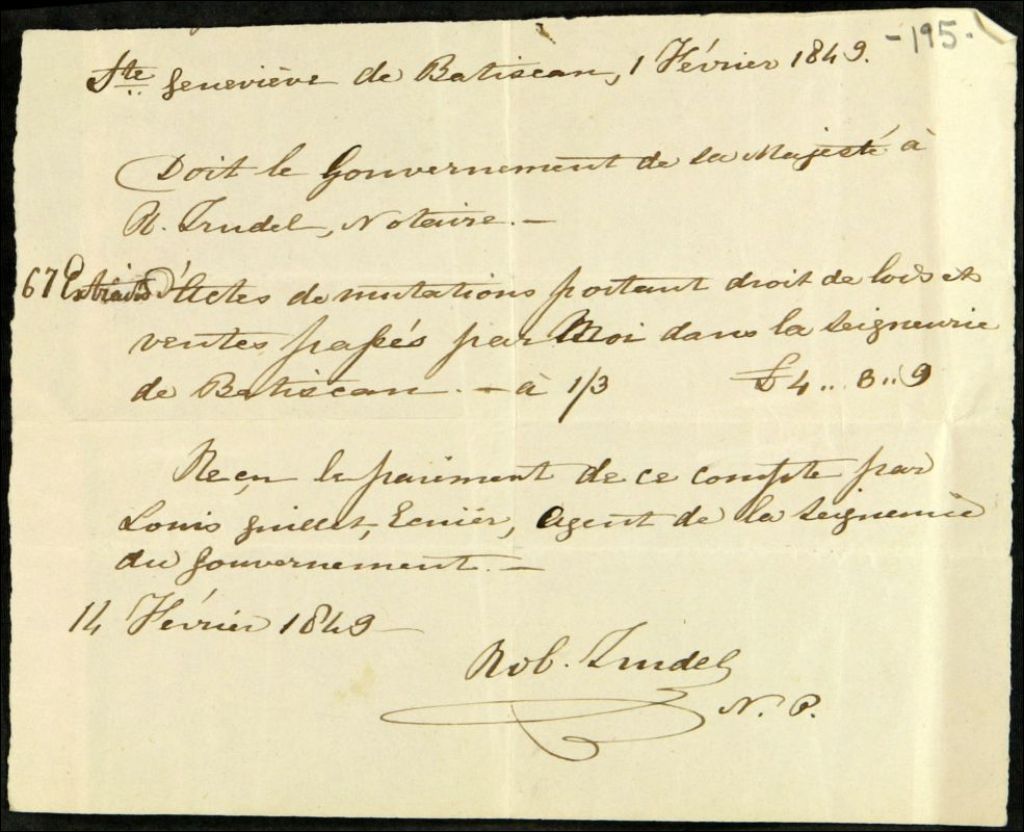 -195.
Ste Geneviève de Batiscan, 1 Février 1849.
Doit le Gouvernement de sa Majesté à
R. Trudel, Notaire. —
67 Extraits d'Actes de mutations portant droit de lods et
ventes passés par Moi dans la seigneurie
de Batiscan. — à 1/3 £ 4 .. 3 .. 9
Reçu le paiement de ce compte par
Louis Guillet, Ecuièr, Agent de la Seigneurie
du Gouvernement. —
14 Février 1849 —
Rob. Trudel
N. P.